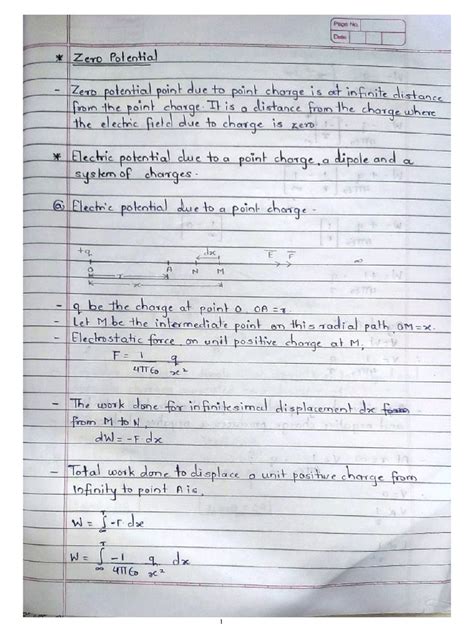 Page No.
Date
* Zero Potential
- Zero potential point due to point charge is at infinite distance
from the point charge. It is a distance from the charge where
the electric field due to charge is zero
* Electric potential due to a point charge, a dipole and a
system of charges.
@ Electric potential due to a point charge.
+q dx E F
O A N M ∞
r
x
- q be the charge at point O, OA=r.
- Let M be the intermediate point on this radial path, OM=x.
- Electrostatic force on unit positive charge at M,
F = 1/4πε0 q/x²
- The work done for infinitesimal displacement dx
from M to N,
dW = -F dx
- Total work done to displace a unit positive charge from
infinity to point A is,
W = ∫∞^r -F dx
W = ∫∞^r -1/4πε0 q/x² dx
1